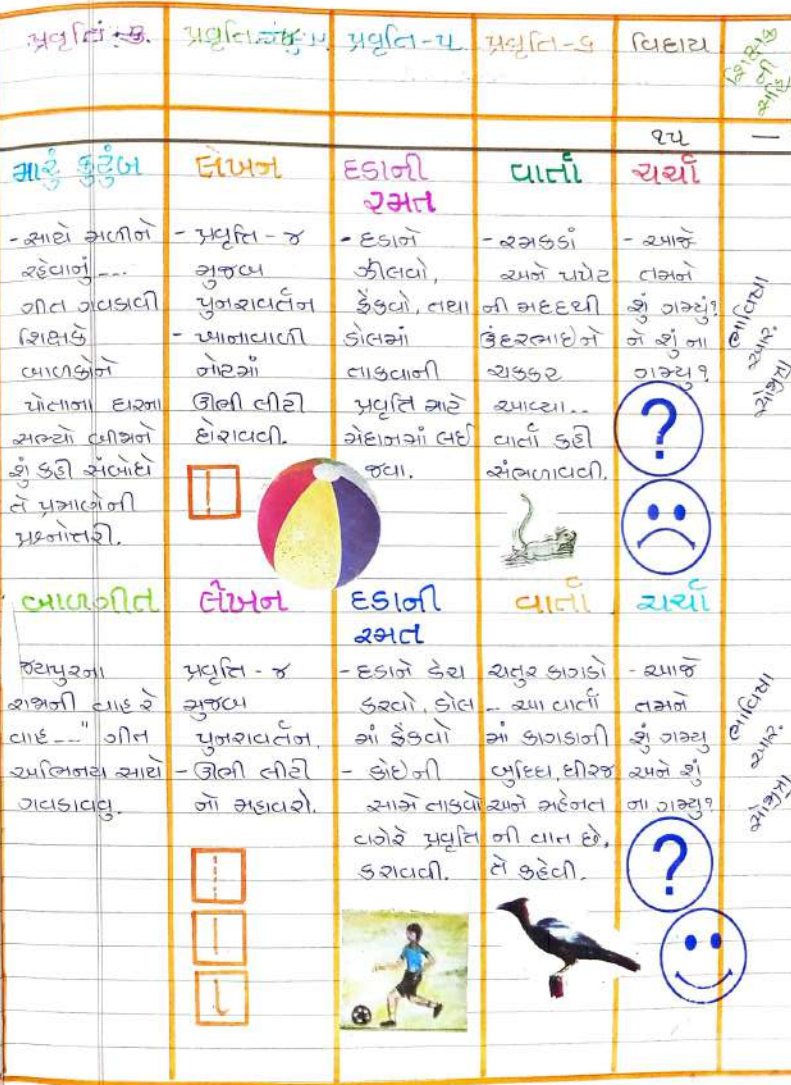 પ્રવૃત્તિ
પ્રવૃત્તિ
પ્રવૃત્તિ-૫
પ્રવૃત્તિ-૬
વિદાય
શિક્ષક
ની
સહી
૧૫
—
મારું કુટુંબ
- સાથે મળીને
રહેવાનું ---
ગીત ગવડાવી
શિક્ષકે
બાળકોને
પોતાના ઘરના
સભ્યો બીજાને
શું કહી સંબોધે
તે પ્રમાણેની
પ્રશ્નોત્તરી.
લેખન
- પ્રવૃત્તિ - ૪
મુજબ
પુનરાવર્તન
- ખાનાવાળી
નોટમાં
ઊભી લીટી
દોરાવવી.
દડાની
રમત
- દડાને
ઝીલવો,
ફેંકવો, તથા
ડોલમાં
તાકવાની
પ્રવૃત્તિ માટે
મેદાનમાં લઈ
જવા.
વાર્તા
- રમકડાં
અને પપેટ
ની મદદથી
ઉંદરભાઈને
ચક્કર
આવ્યા..
વાર્તા કહી
સંભળાવવી.
ચર્ચા
- આજે
તમને
શું ગમ્યું?
ને શું ના
ગમ્યુ?
?
ભાવિષા
આર.
બાળગીત
જયપુરના
રાજાની વાહ રે
વાહ---" ગીત
અભિનય સાથે
ગવડાવવુ.
લેખન
પ્રવૃત્તિ - ૪
મુજબ
પુનરાવર્તન.
- ઊભી લીટી
નો મહાવરો.
દડાની
રમત
- દડાને કેચ
કરવો, ડોલ
માં ફેંકવો
- કોઈની
સામે તાકવો
વગેરે પ્રવૃત્તિ
કરાવવી.
વાર્તા
ચતુર કાગડો
-- આ વાર્તા
માં કાગડાની
બુધ્ધિ, ધીરજ
અને મહેનત
ની વાત છે,
તે કહેવી.
ચર્ચા
- આજે
તમને
શું ગમ્યુ
અને શું
ના ગમ્યુ?
?
ભાવિષા
આર.